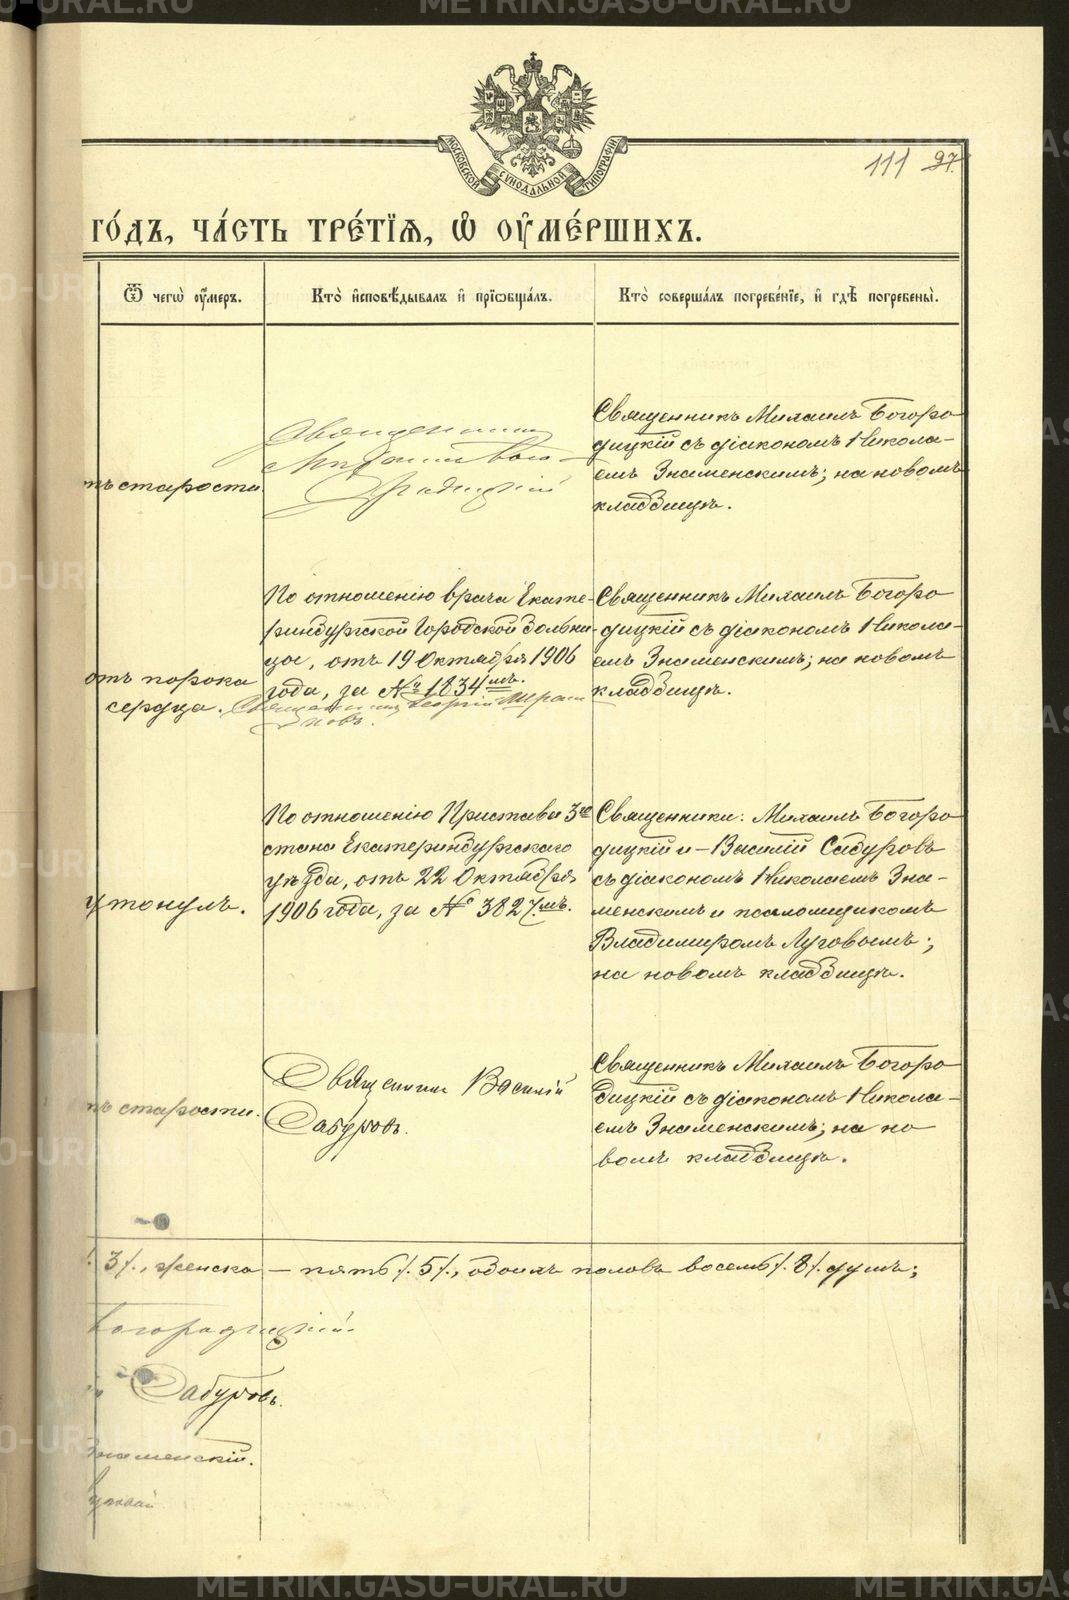 METRIKI.GASU-URAL.RU
МОСКОВСКОЙ СѴНОДАЛЬНОЙ ТИПОГРАФІИ
111 97.
ГО́ДЪ, ЧА́СТЬ ТРЕ́ТІѦ, Ѡ҆ ОУ҆МЕ́РШИХЪ.
Ѿ чегѡ̀ оу҆́мер.
Кто̀ и҆сповѣ́дывалъ и҆ прїѡбща́лъ.
Кто̀ соверша́лъ погребе́нїе, и҆ гдѣ̀ погребены̀.
тъ старости
Священникъ
Михаилъ Бого-
родицкій
Священникъ Михаилъ Богоро
дицкій съ діакономъ Никола-
емъ Знаменскимъ; на новомъ
кладбищѣ.
отъ порока
сердца.
По отношенію врача Екате-
ринбургской Городской больни-
цы, отъ 19 Октября 1906
года, за № 1834мъ.
Священникъ Георгій
новъ.
Священникъ Михаилъ Богоро
дицкій съ діакономъ Никола-
емъ Знаменскимъ; на новомъ
кладбищѣ.
утонулъ.
По отношенію Пристава 3го
стана Екатеринбургскаго
уѣзда, отъ 22 Октября
1906 года, за № 3827мъ.
Священники: Михаилъ Богоро
дицкій и Василій Сабуровъ
съ діакономъ Николаемъ Зна-
менскимъ и псаломщикомъ
Владимиромъ Луговымъ;
на новомъ кладбищѣ.
тъ старости.
Священникъ Василій
Сабуровъ.
Священникъ Михаилъ Богоро
дицкій съ діакономъ Никола-
емъ Знаменскимъ; на но
вомъ кладбищѣ.
3/., женска – пять /.5/., обоихъ половъ восемь /.8/. душъ;
Богородицкій.
Сабуровъ.
Знаменскій.
уговой